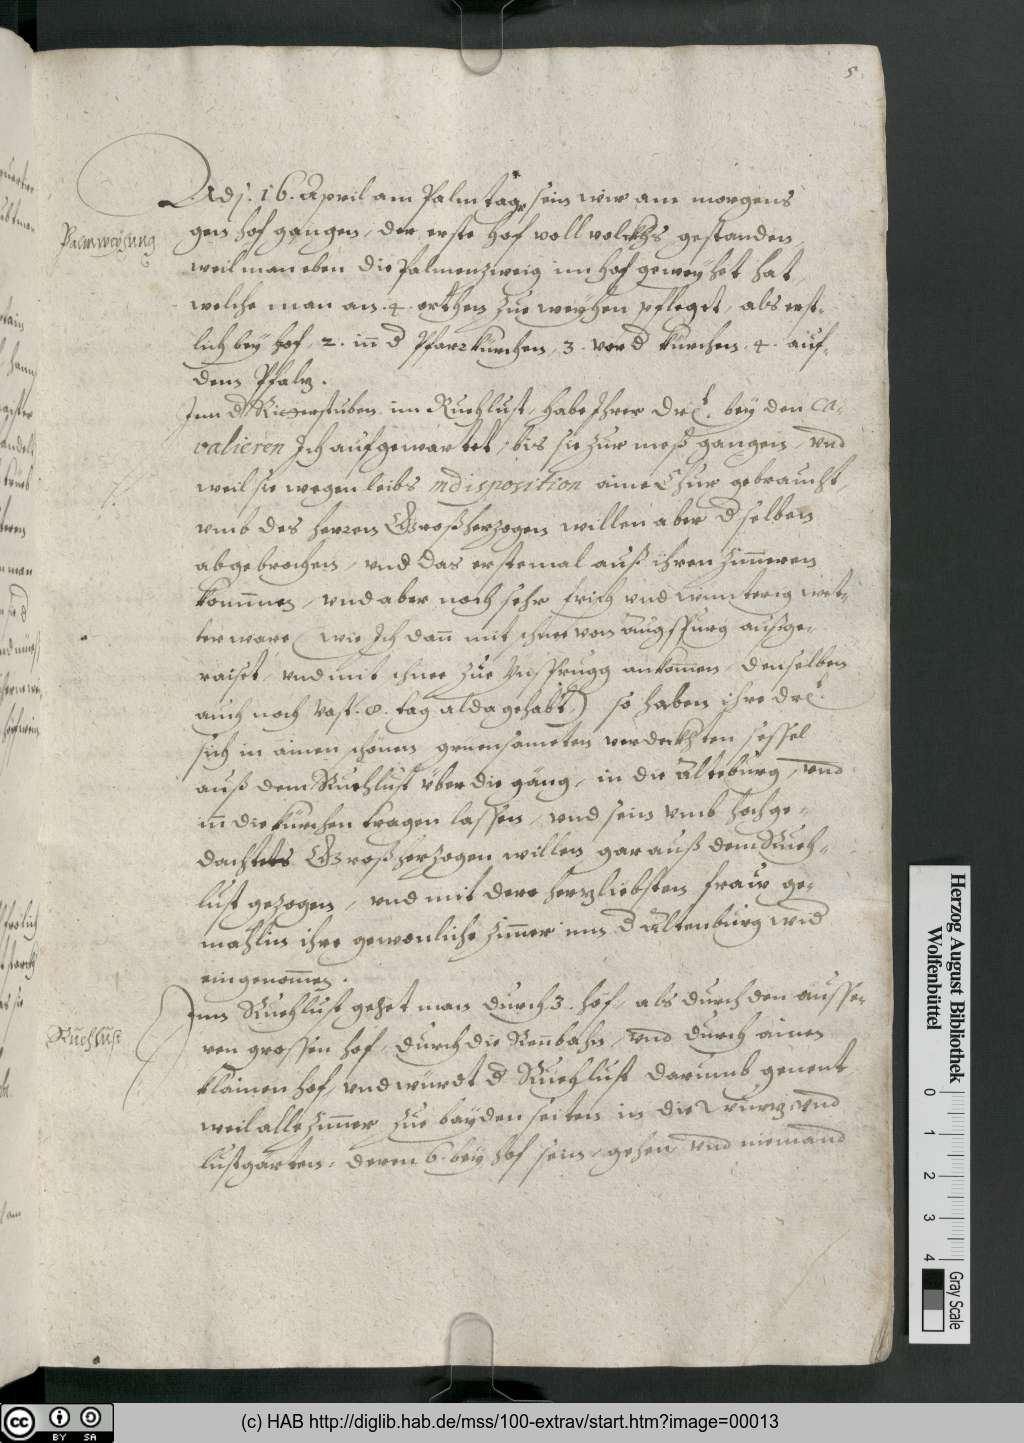 5
Adj. 16. April am Palmtag sein wir am morgens
Palmweyhung
gen hof gangen, der erste hof voll volckhs gestanden,
weil man eben die Palmenzweig im hof geweyhet hat,
welche man an .4. orthen zue weyhen pfleget, als erst-
lich bey hof, 2. in d Pfarrkürchen, 3. vor d kürchen .4. auf-
dem Pfalz.
Inn d Ritterstuben im Ruehlust, habe Ihrer Drl. bey den ca-
valieren Ich aufgewartet, bis sie zur meß gangen, vnd
weil sie wegen leibs indisposition aine Chur gebraucht,
vmb des herren Großherzogen willen aber dselben
abgebrochen, vnd das erstemal auß ihren Zimmeren
kommen, vnd aber noch sehr frisch vnd wintterig wet-
ter ware (wie Ich dan mit schnee von Augspurg außge-
raiset, vnd mit schnee zue Ynsprugg ankomen, denselben
auch noch vast .8. tag alda gehabt) so haben ihre Drl.
sich in ainem schönen grensameten verdeckhten sessel
auß dem Ruehlust über die gäng, in die Alteburg, vnd
in die kürchen tragen lassen, vnd sein vmb hochge-
dachtets Großherzogen willen gar auß dem Rueh-
lust gezogen, vnd mit dero herzliebsten fraw ge-
mahlin ihre gewonliche Zimer inn d Altenburg wid
eingenomen.
Inn Ruehlust gehet man durch 3. höf, als durch den eusse-
Ruehlust
ren grossen hof, durch die Rennbahn, vnd durch ainen
klainen hof, vnd würdt d Ruehlust darumb genent,
weil alle Zimmer zue bayden seiten in die wurz vnd
lustgärten, deren 6. bey hof sein, gehen vnd niemand
Herzog August Bibliothek
Wolfenbüttel
0 1 2 3 4
Gray Scale
cc BY SA
(c) HAB http://diglib.hab.de/mss/100-extrav/start.htm?image=00013